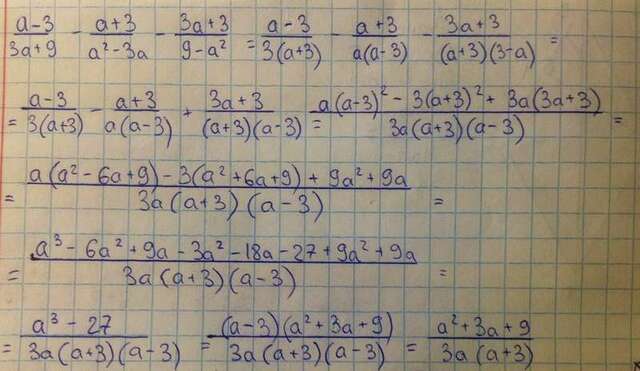 (a-3)/(3a+9) - (a+3)/(a²-3a) - (3a+3)/(9-a²) = (a-3)/(3(a+3)) - (a+3)/(a(a-3)) - (3a+3)/((a+3)(3-a)) =
= (a-3)/(3(a+3)) - (a+3)/(a(a-3)) + (3a+3)/((a+3)(a-3)) = (a(a-3)² - 3(a+3)² + 3a(3a+3))/(3a(a+3)(a-3)) =
= (a(a²-6a+9) - 3(a²+6a+9) + 9a²+9a)/(3a(a+3)(a-3)) =
= (a³ - 6a² + 9a - 3a² - 18a - 27 + 9a² + 9a)/(3a(a+3)(a-3)) =
= (a³ - 27)/(3a(a+3)(a-3)) = ((a-3)(a²+3a+9))/(3a(a+3)(a-3)) = (a²+3a+9)/(3a(a+3))